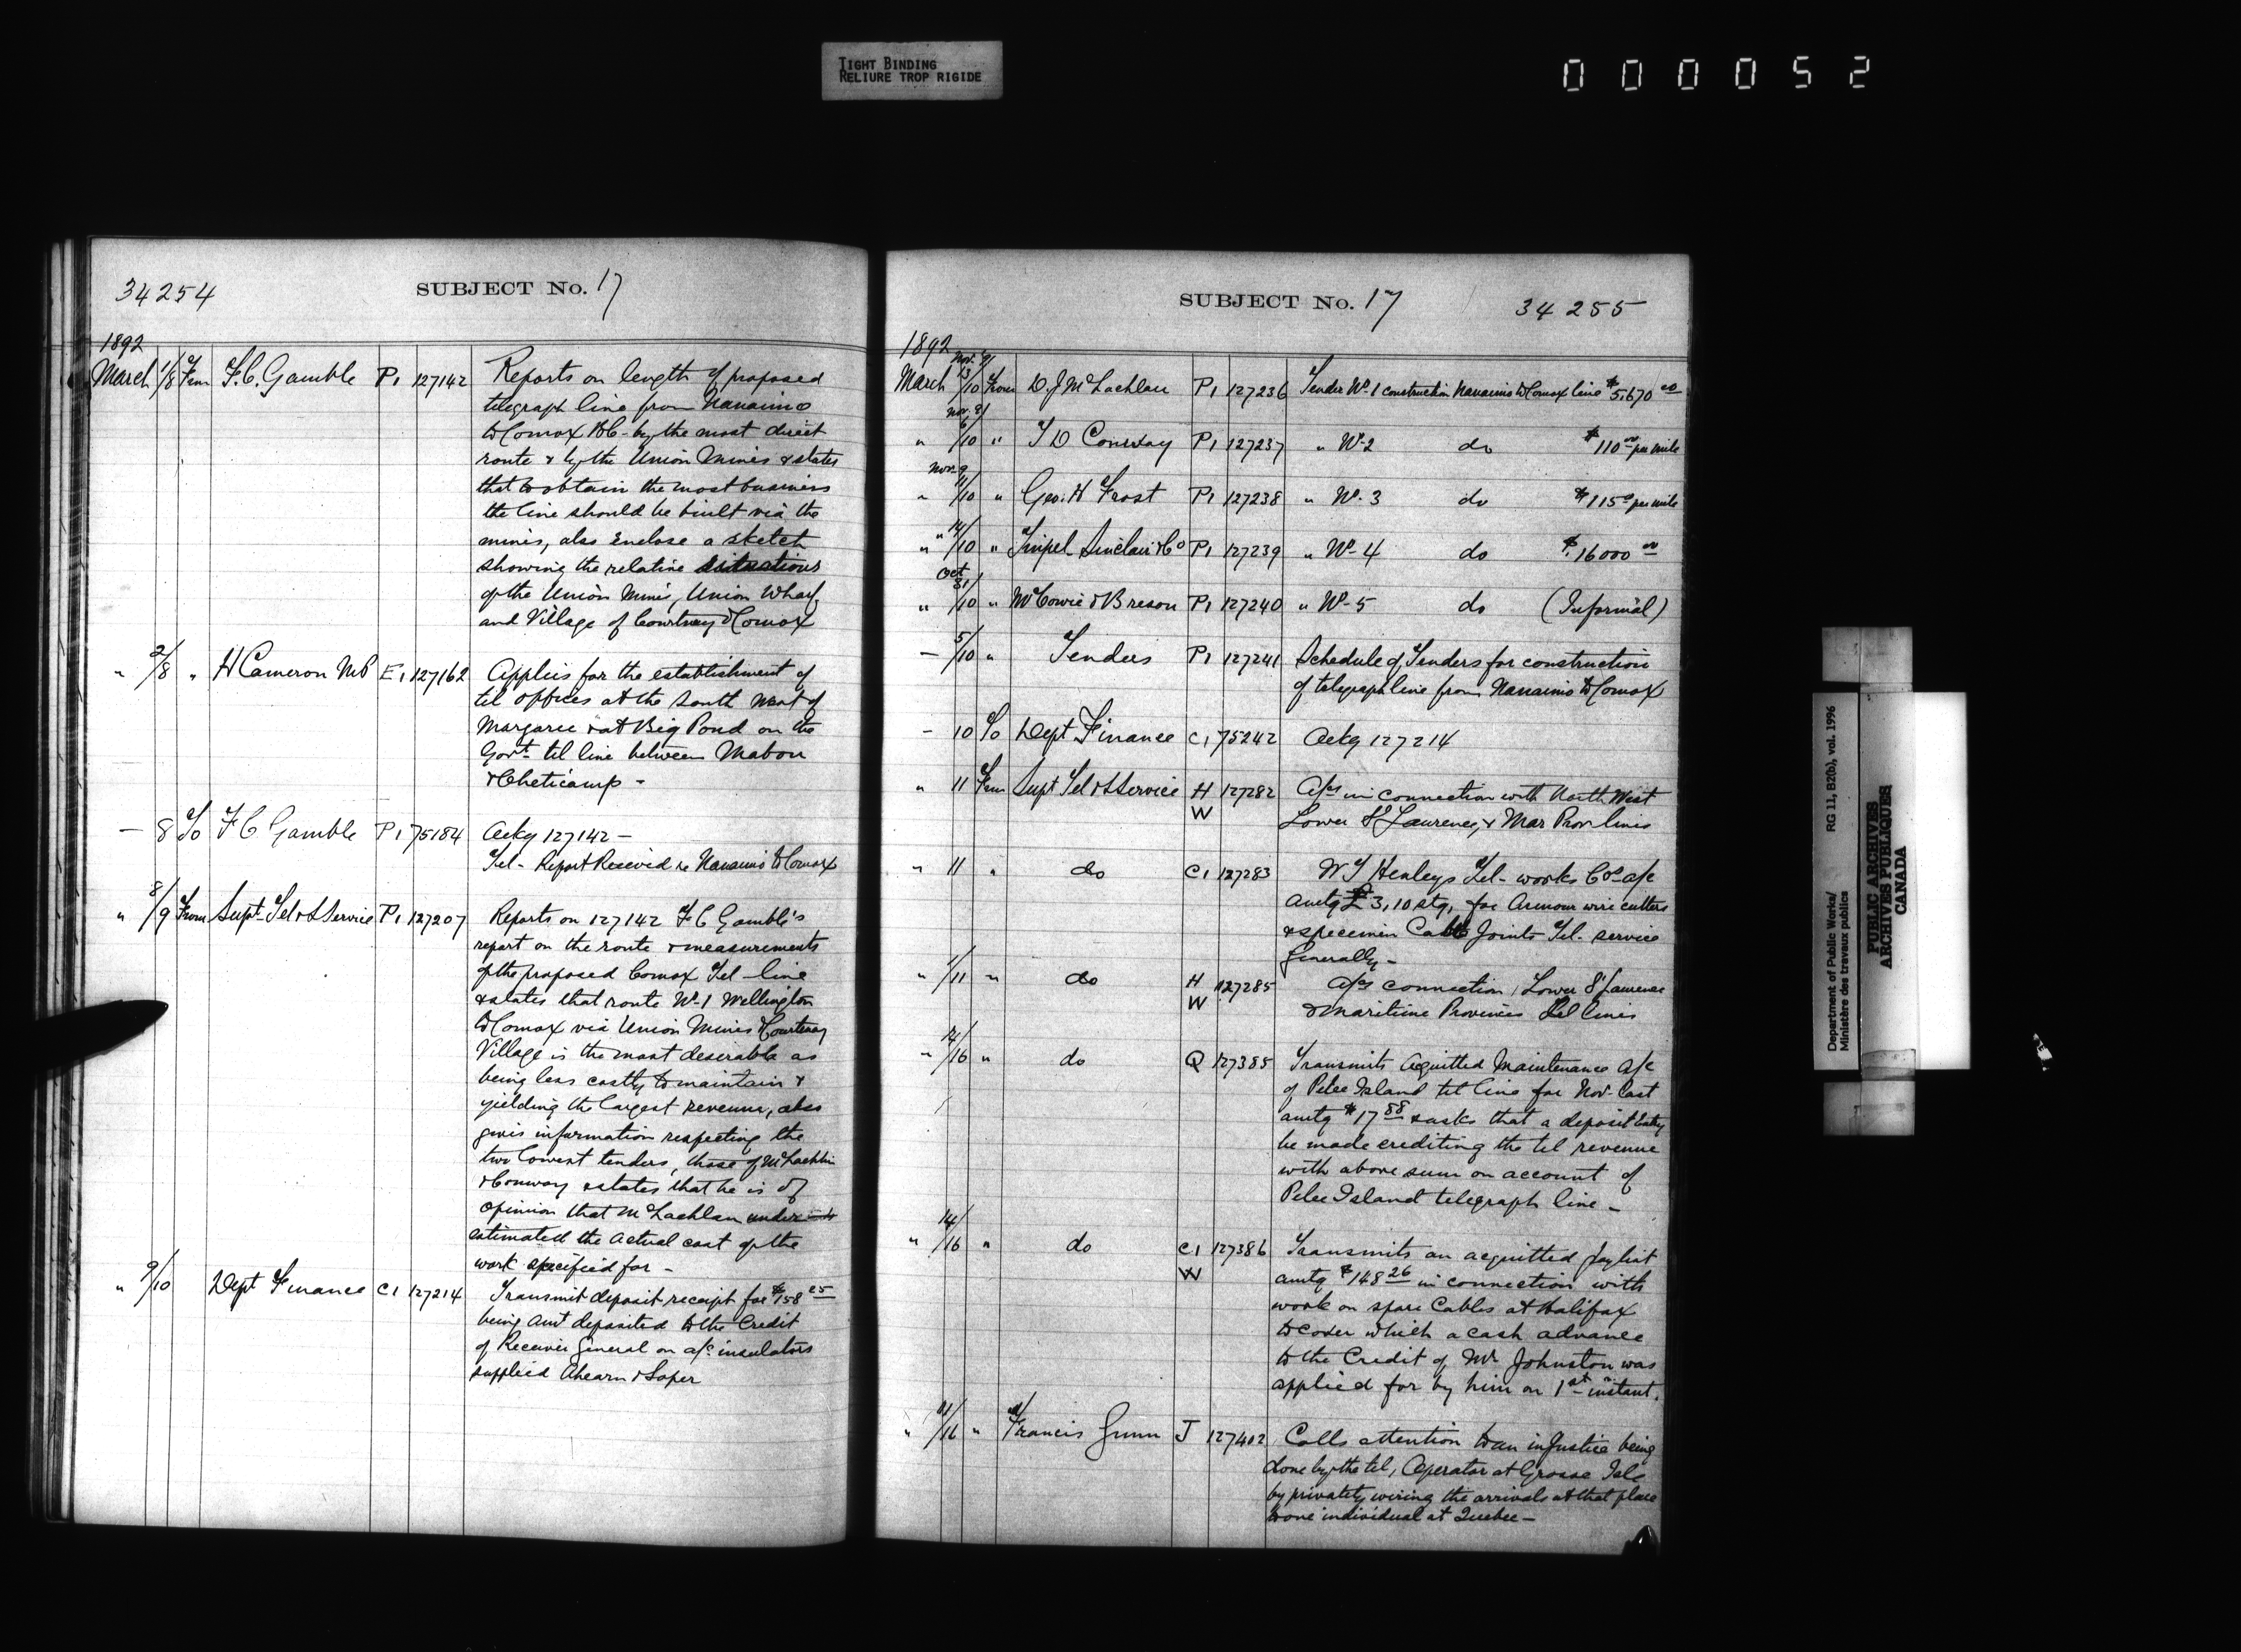 TIGHT BINDING
RELIURE TROP RIGIDE
000052
34254
SUBJECT No. 17
1892
March 1/8 From F. C. Gamble P1 127142 Reports on length of proposed
telegraph line from Nanaimo
to Comox B.C. by the most direct
route & by the Union Mines & states
that to obtain the most business
the line should be built via the
mines, also enclose a sketch
showing the relative situations
of the Union Mines, Union Wharf,
and Village of Courtney & Comox
" 2/8 " H Cameron MP E1 127162 Applies for the establishment of
tel offices at the South West of
Margaree & at Big Pond on the
Govt tel line between Mabou
& Cheticamp -
— 8 To F C Gamble P1 75184 Ackg 127142 —
Tel- Report Received re Nanaimo & Comox
" 8/9 From Supt Tel & S Service P1 127207 Reports on 127142 F C Gamble's
report on the route & measurements
of the proposed Comox Tel-line
& states that route No 1 Wellington
to Comox via Union Mines & Courtenay
Village is the most deserable as
being less costly to maintain &
yielding the largest revenue, also
gives information respecting the
two lowest tenders, those of McLachlin
& Conway & states that he is of
opinion that McLachlan under
estimated the actual cost of the
work specified for -
" 9/10 Dept Finance C1 127214 Transmit deposit receipt for $158 25
being amt deposited to the Credit
of Receiver General on a/c insulators
supplied Ahearn & Soper
SUBJECT No. 17
34255
1892
March Nov. 9/ 13/10 From D. J McLachlan P1 127236 Tender No-1 construction Nanaimo & Comox line $5,670 00
" Nov. 9/ 6/10 " J D Conway P1 127237 " No-2 do $110 00 per mile
" Nov-9 11/10 " Geo. H Frost P1 127238 " No-3 do $115 0 per mile
" " 14/10 " Sinclair & Co P1 127239 " No-4 do $16000 00
" Oct 31/10 " McCowie & Breson P1 127240 " No-5 do (Informal)
— 5/10 " Tenders P1 127241 Schedule of Tenders for construction
of telegraph line from Nanaimo & Comox
— 10 To Dept Finance C1 75242 Ackg 127214
" 11 From Supt Tel & S Service H W 127282 A/cs in connection with North West
Lower St Laurence, & Mar Prov lines
" 11 " do C1 127283 W T Henleys Tel- works Cos a/c
amtg £3,10 stg, for Armour wire cutters
& specimen Cable Joints Tel- service
Generally -
" 7/11 " do H W 127285 A/cs connection Lower St Laurence
& Maritime Provinces Tel lines
" 14/16 " do Q 127385 Transmits acquitted Maintenance a/c
of Pelee Island tel line for Nov-last
amtg $17 88 & asks that a deposit Entry
be made crediting the tel revenue
with above sum on account of
Pelee Island telegraph line -
" 14/16 " do C1 W 127386 Transmits an acquitted Paylist
amtg $148 26 in connection with
work on spare Cables at Halifax
to cover which a cash advance
to the Credit of Mr Johnston was
applied for by him on 1st instant.
" 11/16 " Francis Gunn J 127402 Calls attention to an injustice being
done by the tel, Operator at Grosse Isle
by privately wiring the arrivals at that place
to one individual at Quebec -
Department of Public Works/
Ministère des travaux publics
RG 11, B2(b), vol. 1996
PUBLIC ARCHIVES
ARCHIVES PUBLIQUES
CANADA